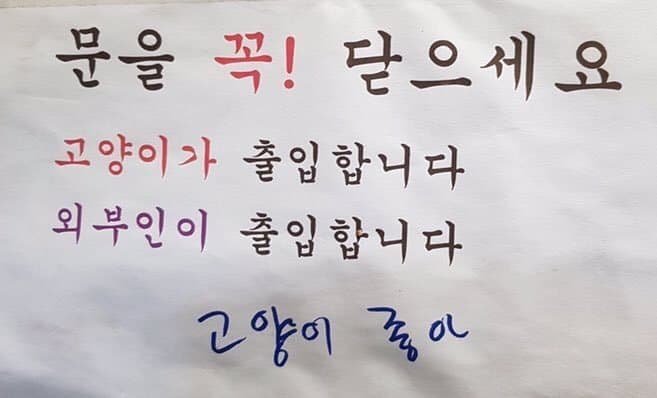 문을 꼭! 닫으세요
고양이가 출입합니다
외부인이 출입합니다
고양이 좋아